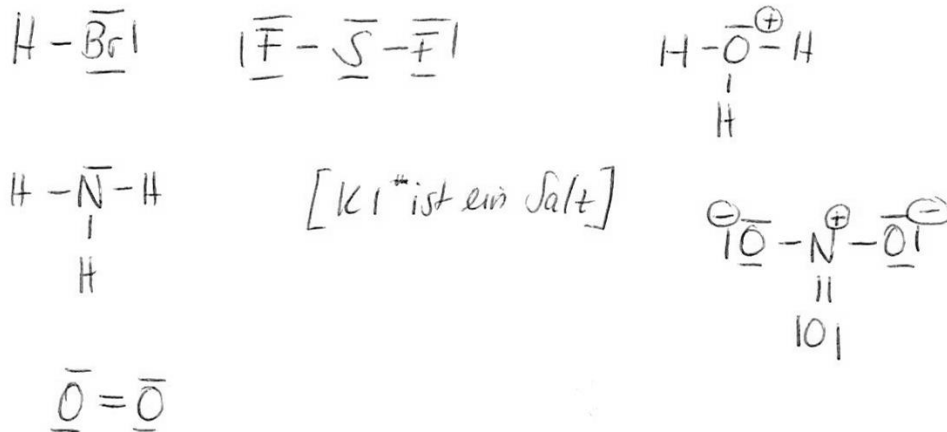 H – Br| |F – S – F| H – O⊕ – H
|
H
H – N – H [KI "ist ein Salz]
|
H
⊖|O – N⊕ – O|⊖
||
|O|
O = O